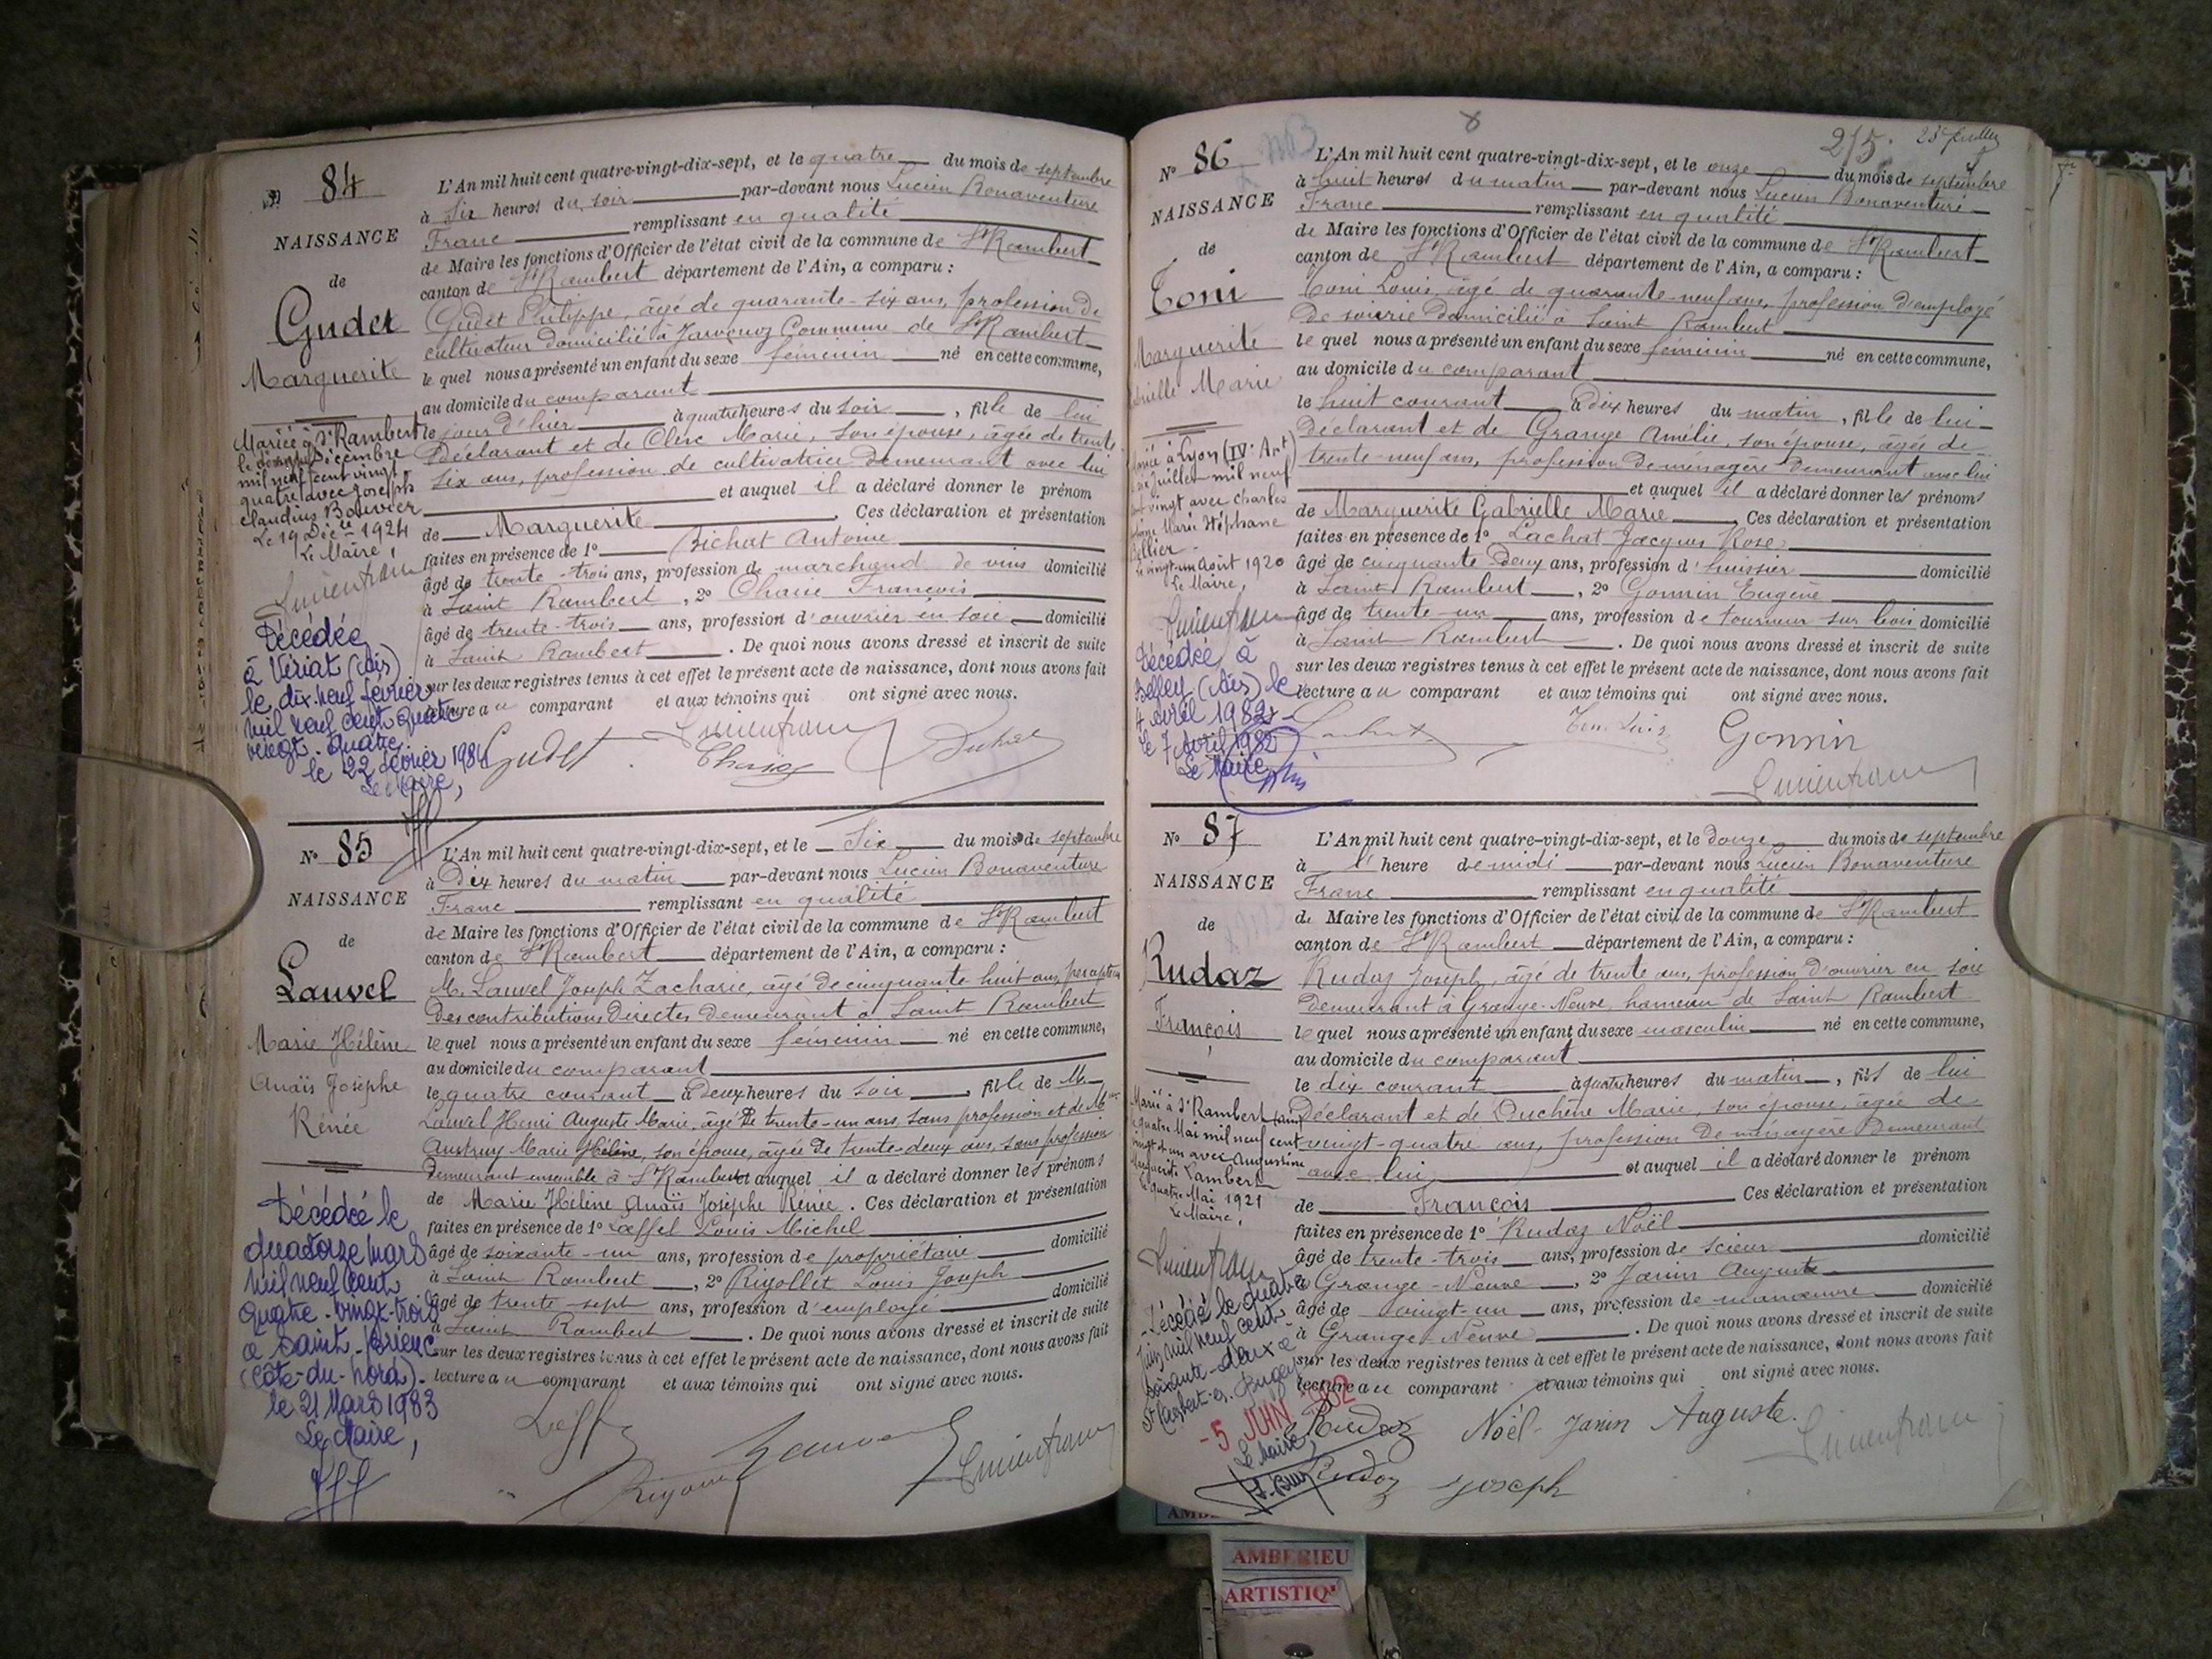 N° 84
NAISSANCE
de
Gudet
Marguerite
Mariée à St Rambert
le dix neuf Décembre
mil neuf cent vingt-
quatre avec Joseph
Claudius Bouvier
Le 19 Déc. 1924
Le Maire,
Lucien franc
Décédée
à Viriat (Ain)
le dix-neuf février
mil neuf cent quatre
vingt-quatre
le 22 février 1984
Le Maire,
L'An mil huit cent quatre-vingt-dix-sept, et le quatre du mois de septembre
à six heures du soir par-devant nous Lucien Bonaventure
Franc remplissant en qualité
de Maire les fonctions d'Officier de l'état civil de la commune de St Rambert
canton de St Rambert département de l'Ain, a comparu :
Gudet Philippe, âgé de quarante-six ans, profession de
cultivateur domicilié à Javornoz Commune de St Rambert
lequel nous a présenté un enfant du sexe féminin né en cette commune,
au domicile du comparant
le jour d'hier à quatre heures du soir, fille de lui
déclarant et de Clerc Marie, son épouse, âgée de trente
six ans, profession de cultivatrice demeurant avec lui
et auquel il a déclaré donner le prénom
de Marguerite Ces déclaration et présentation
faites en présence de 1° Bichat Antoine
âgé de trente-trois ans, profession de marchand de vins domicilié
à Saint Rambert, 2° François
âgé de trente-trois ans, profession d'ouvrier en soie domicilié
à Saint Rambert. De quoi nous avons dressé et inscrit de suite
sur les deux registres tenus à cet effet le présent acte de naissance, dont nous avons fait
lecture au comparant et aux témoins qui ont signé avec nous.
Gudet Lucien franc
N° 85
NAISSANCE
de
Lauvel
Marie Hélène
Anaïs Josèphe
Rénée
Décédée le
quatorze mars
mil neuf cent
quatre-vingt-trois
à Saint-Brieuc
(Côte-du-Nord).
le 21 Mars 1983
Le Maire,
L'An mil huit cent quatre-vingt-dix-sept, et le six du mois de septembre
à dix heures du matin par-devant nous Lucien Bonaventure
Franc remplissant en qualité
de Maire les fonctions d'Officier de l'état civil de la commune de St Rambert
canton de St Rambert département de l'Ain, a comparu :
M. Lauvel Joseph Zacharie, âgé de cinquante-huit ans, percepteur
des contributions directes demeurant à Saint Rambert
lequel nous a présenté un enfant du sexe féminin né en cette commune,
au domicile du comparant
le quatre courant à deux heures du soir, fille de M.
Lauvel Henri Auguste Marie, âgé de trente-un ans, sans profession et de Me
Marie Hélène, son épouse, âgée de trente-deux ans, sans profession
demeurant ensemble à St Rambert et auquel il a déclaré donner les prénoms
de Marie Hélène Anaïs Josèphe Rénée. Ces déclaration et présentation
faites en présence de 1° Loeffel Louis Michel
âgé de soixante-un ans, profession de propriétaire domicilié
à Saint Rambert, 2° Rigollet Louis Joseph
âgé de trente-sept ans, profession d'employé domicilié
à Saint Rambert. De quoi nous avons dressé et inscrit de suite
sur les deux registres tenus à cet effet le présent acte de naissance, dont nous avons fait
lecture au comparant et aux témoins qui ont signé avec nous.
Lucien franc
215.
N° 86
NAISSANCE
de
Toni
Marguerite
Gabrielle Marie
Mariée à Lyon (IVe Art)
Juillet mil neuf
cent vingt avec Charles
Marie Stéphane
Le vingt-un Août 1920
Le Maire,
Lucien franc
Décédée à
Belley (Ain) le
4 avril 1982
le 7 Avril 1982
Le Maire
L'An mil huit cent quatre-vingt-dix-sept, et le onze du mois de septembre
à huit heures du matin par-devant nous Lucien Bonaventure
Franc remplissant en qualité
de Maire les fonctions d'Officier de l'état civil de la commune de St Rambert
canton de St Rambert département de l'Ain, a comparu :
Toni Louis, âgé de quarante-neuf ans, profession d'employé
de soierie domicilié à Saint Rambert
lequel nous a présenté un enfant du sexe féminin né en cette commune,
au domicile du comparant
le huit courant à dix heures du matin, fille de lui
déclarant et de Grange Amélie, son épouse, âgée de
trente-neuf ans, profession de ménagère demeurant avec lui
et auquel il a déclaré donner les prénoms
de Marguerite Gabrielle Marie Ces déclaration et présentation
faites en présence de 1° Lachat Jacques Rose
âgé de cinquante deux ans, profession d'huissier domicilié
à Saint Rambert, 2° Gonnin Eugène
âgé de trente-un ans, profession de tourneur sur bois domicilié
à Saint Rambert. De quoi nous avons dressé et inscrit de suite
sur les deux registres tenus à cet effet le présent acte de naissance, dont nous avons fait
lecture au comparant et aux témoins qui ont signé avec nous.
Lachat Toni Louis Gonnin
Lucien franc
N° 87
NAISSANCE
de
Rudaz
François
Marié à St Rambert (Ain)
le quatre Mai mil neuf cent
vingt-un avec Augustine
Marguerite Lambert
Le quatre Mai 1921
Le Maire,
Lucien franc
Décédé le quatre
juin mil neuf cent
soixante-deux à
St Rambert-en-Bugey
- 5 JUIN 1962
Le Maire,
L'An mil huit cent quatre-vingt-dix-sept, et le douze du mois de septembre
à l'heure de midi par-devant nous Lucien Bonaventure
Franc remplissant en qualité
de Maire les fonctions d'Officier de l'état civil de la commune de St Rambert
canton de St Rambert département de l'Ain, a comparu :
Rudaz Joseph, âgé de trente ans, profession d'ouvrier en soie
demeurant à Grange-Neuve, hameau de Saint Rambert
lequel nous a présenté un enfant du sexe masculin né en cette commune,
au domicile du comparant
le dix courant à quatre heures du matin, fils de lui
déclarant et de Duchêne Marie, son épouse, âgée de
vingt-quatre ans, profession de ménagère demeurant
avec lui et auquel il a déclaré donner le prénom
de François Ces déclaration et présentation
faites en présence de 1° Rudaz Noël
âgé de trente-trois ans, profession de scieur domicilié
à Grange-Neuve, 2° Janin Auguste
âgé de vingt-un ans, profession de manoeuvre domicilié
à Grange-Neuve. De quoi nous avons dressé et inscrit de suite
sur les deux registres tenus à cet effet le présent acte de naissance, dont nous avons fait
lecture au comparant et aux témoins qui ont signé avec nous.
Rudaz Noël Janin Auguste. Lucien franc
Rudaz Joseph
AMBERIEU
ARTISTIQ